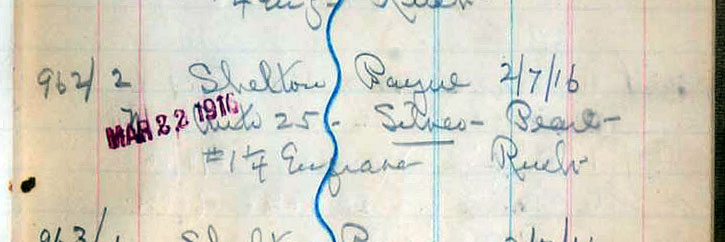 Rush
962/ 2 Shelton Payne 2/7/16
MAR 22 1916 Auto 25 - Silver - Pearl -
#1 1/4 Engraver Rush
963/1